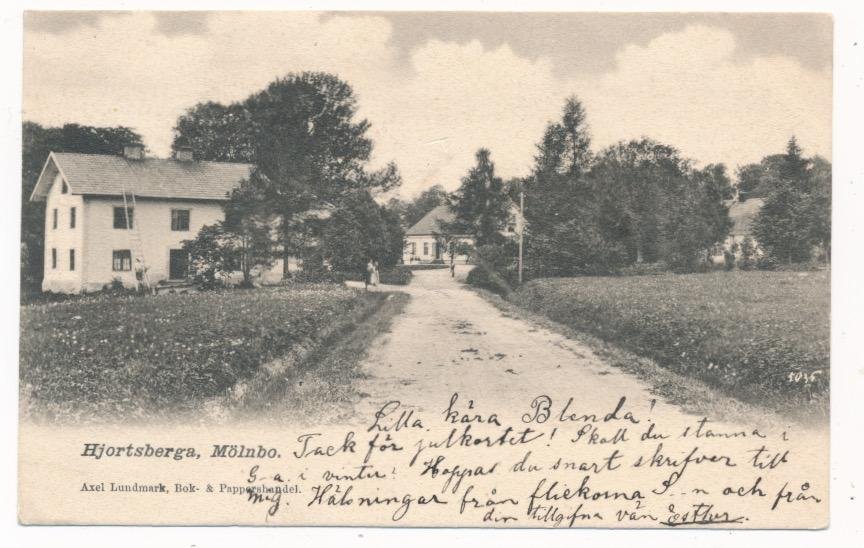 5036
Lilla kära Blenda!
Hjortsberga, Mölnbo. Tack för julkortet! Skall du stanna i
G-a. i vinter? Hoppas du snart skrifver till
Axel Lundmark, Bok- & Pappershandel.
mig. Hälsningar från flickorna S..n och från
din tillgifna vän Esther.